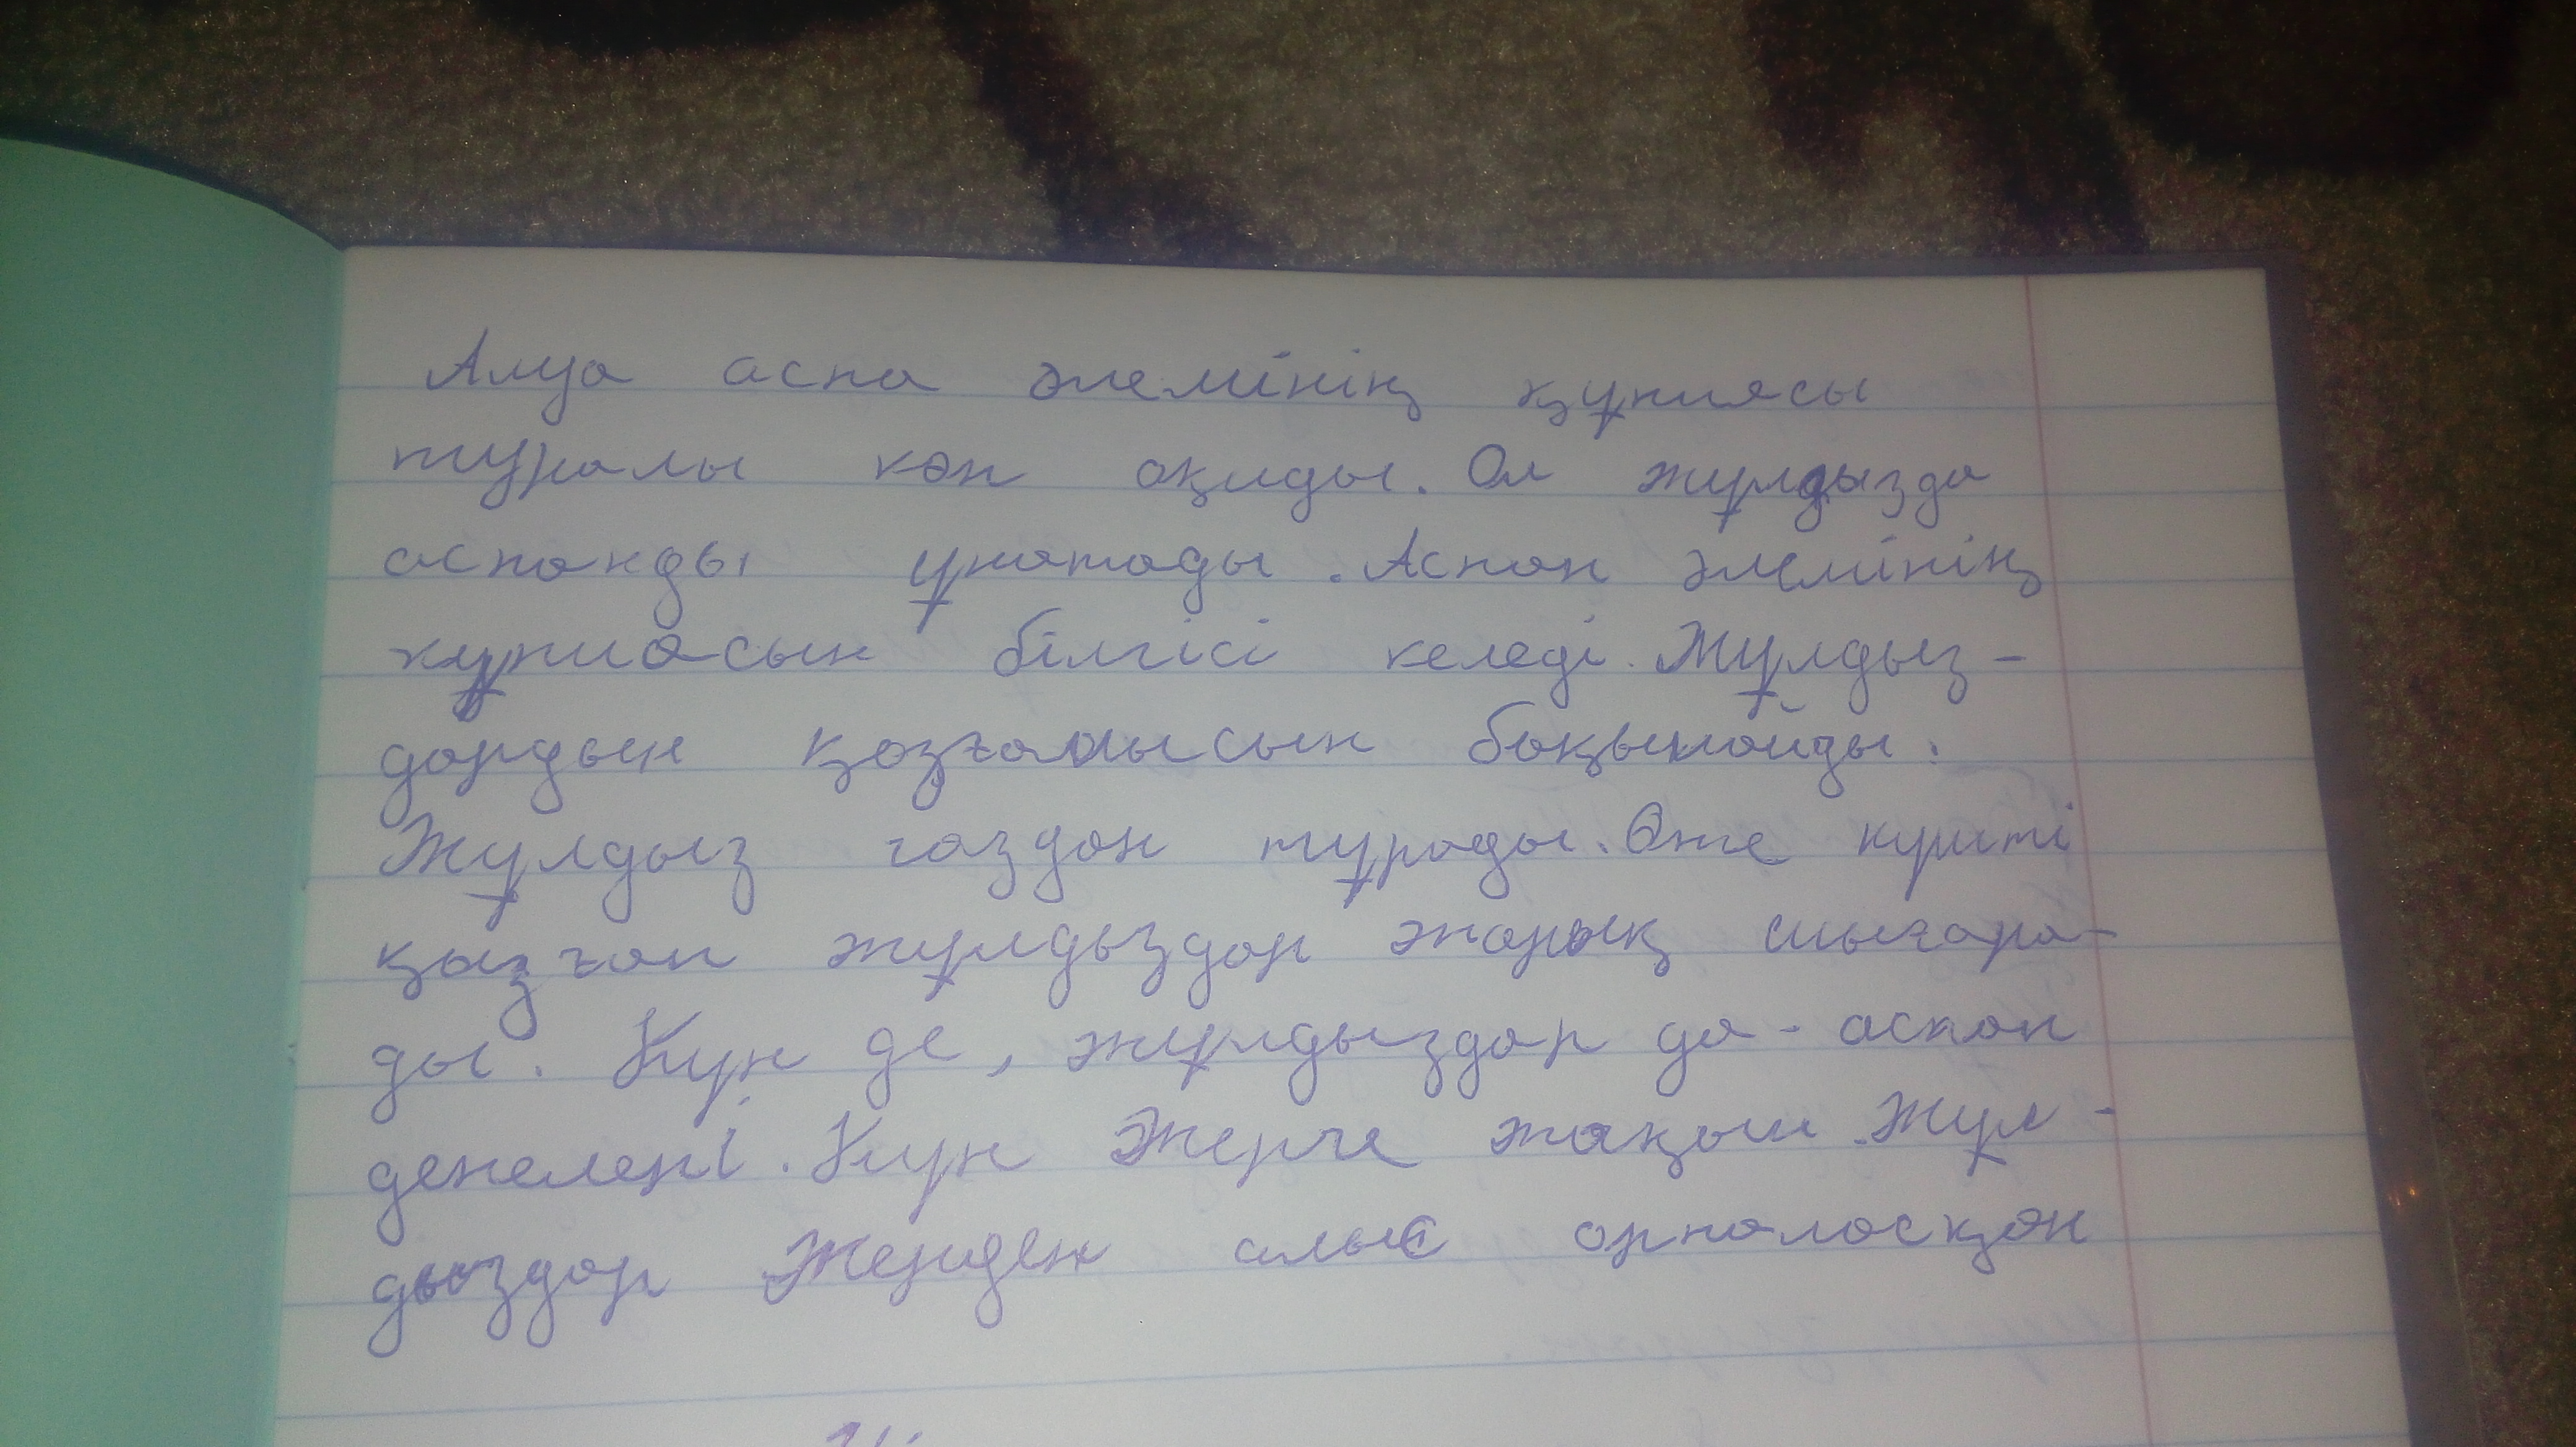 Алуа аспа әлемінің құпиясы
туралы көп оқиды. Ол жұлдызда
аспанды ұнатады. Аспан әлемінің
құпиасын білгісі келеді. Жұлдыз-
дардын қозғалысын бақылайды.
Жұлдыз газдан тұрады. Өте күшті
қызған жұлдыздар жарық шығара-
ды. Күн де, жұлдыздар да - аспан
денелері. Күн Жерге жақын. Жұл-
дыздар Жерден алыс орналасқан